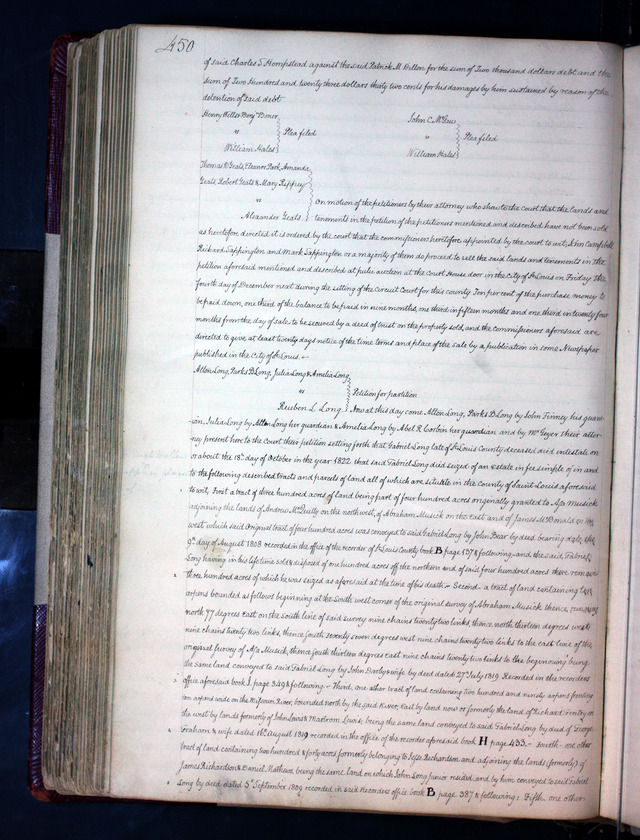 450
of said Charles S Hempstead against the said Patrick M Dillon for the sum of Two thousand dollars debt and the
sum of Two Hundred and twenty three dollars thirty two cents for his damages by him sustained by reason of the
detention of said debt
Henry Miller Benj
vs Plea filed
William Hales
John C McGew
vs Plea filed
William Hales
Thomas D Geats, Eleanor Park, Amanda
Geats, Robert Geats & Mary Rippey
vs
Alexander Geats. On motion of the petitioners by their attorney who show to the court that the lands and
tenements in the petition of the petitioners mentioned and described have not been sold
as heretofore directed it is ordered by the court that the commissioners heretofore appointed by the court to wit, John Campbell
Richard Sappington and Mark Sappington or a majority of them do proceed to sell the said lands and tenements in the
petition aforesaid mentioned and described at public auction at the Court House door in the City of St Louis on Friday the
fourth day of December next during the sitting of the Circuit Court for this county Ten per cent of the purchase money to
be paid down, one third of the balance to be paid in nine months, one third in fifteen months and one third in twenty four
months from the day of sale to be secured by a deed of trust on the property sold, and the commissioners aforesaid are
directed to give at least twenty days notice of the time terms and place of the sale by a publication in some Newspaper
published in the City of St Louis. -
Allen Long, Parks D Long, Julia Long & Amelia Long
vs Petition for partition
Reuben L Long Now at this day come Allen Long, Parks D Long by John Finney his guar
-ian, Julia Long by Allen Long her guardian & Amelia Long by Abel R Corbin her guardian and by Mr Geyer their attor-
ney present here to the Court their petition setting forth that Gabriel Long late of St Louis County deceased died intestate on
or about the 18th day of October in the year 1822 that said Gabriel Long died seized of an estate in fee simple of in and
to the following described tracts and parcels of land all of which are situate in the County of Saint Louis aforesaid
to wit, First a tract of three hundred acres of land being part of four hundred acres originally granted to Asa Musick
adjoining the lands of Andrew McQuitty on the north west, of Abraham Musick on the east and of James McDonald on the
west which said Original tract of four hundred acres was conveyed to said Gabriel Long by John Bear by deed bearing date the
9th day of August 1808 recorded in the office of the recorder of St Louis County book B page 137 & following, and the said, Gabriel
Long having in his life time sold & disposed of one hundred acres off the northern end of said four hundred acres there remains
three hundred acres of which he was seized as aforesaid at the time of his death :- Second - a tract of land containing
arpens bounded as follows beginning at the south west corner of the original survey of Abraham Musick thence running
north 77 degrees East on the south line of said survey nine chains twenty two links, thence north thirteen degrees west
nine chains twenty two links, thence south seventy seven degrees west nine chains twenty two links to the east line of the
original survey of Asa Musick, thence south thirteen degrees east nine chains twenty two links to the beginning being
the same land conveyed to said Gabriel Long by John Darby & wife by deed dated 27 July 1819 Recorded in the recorders
office aforesaid book I page 349 & following - Third, one other tract of land containing two hundred and ninety arpens fronting
ten arpens wide on the Missouri River, bounded north by the said River, East by land now or formerly the land of Richard Fentry on
the west by lands formerly of John Lewis & Mastrom Lewis, being the same land conveyed to said Gabriel Long by deed of George
Graham & wife dated 16th August 1809 recorded in the office of the recorder aforesaid book H page 433. - Fourth - one other
tract of land containing two hundred & forty acres formerly belonging to Jesse Richardson and adjoining the lands (formerly) of
James Richardson & Daniel Mathews being the same land on which John Long junior resided and by him conveyed to said Gabriel
Long by deed dated 5th September 1809 recorded in said Recorders office book B page 387 & following: Fifth, one other